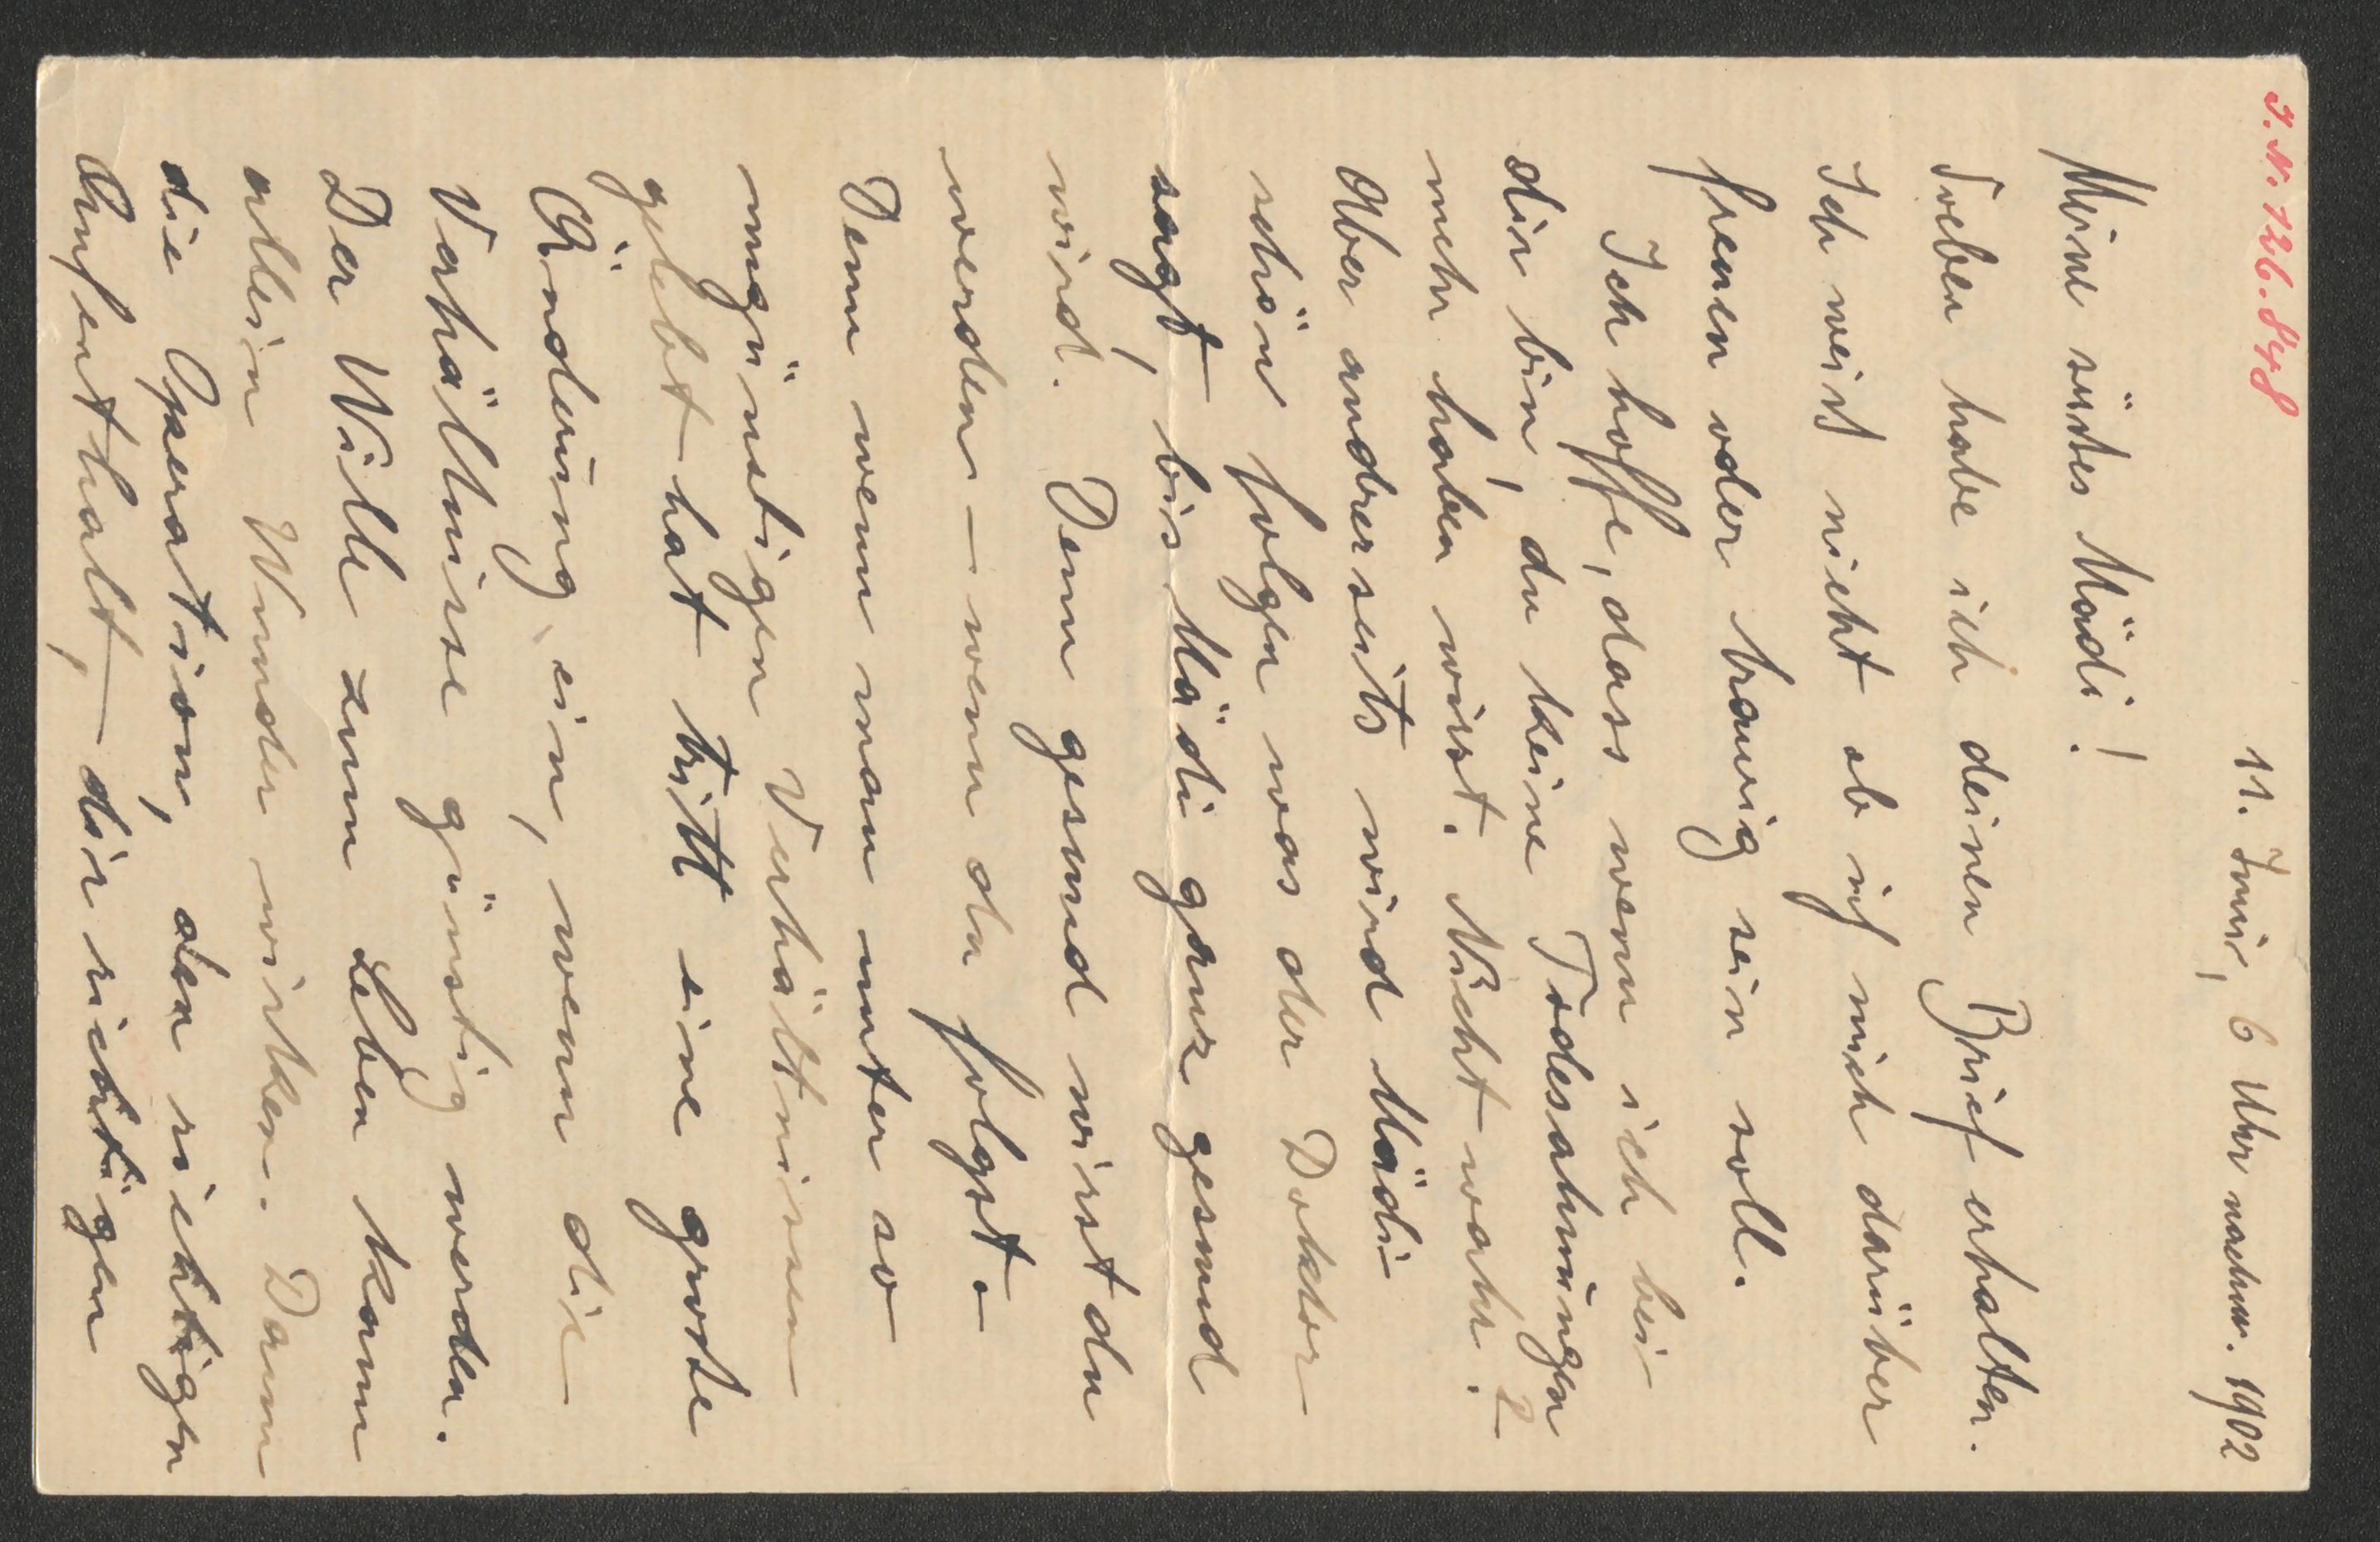 I. N. 126.848
11. Juni, 6 Uhr nachm. 1902
Meine süstes Mädi!
Soeben habe ich deinen Brief erhalten.
Ich weist nicht ob ich mich darüber
freuen oder traurig sein soll.
Ich hoffe, dass wenn ich bei
dir bin, du keine Todesahnungen
mehr haben wirst. Nicht wahr?
Aber anderseits wird Mädi
schön folgen was der Doktor
sagt, bis Mädi ganz gesund
wird. Denn gesund wirst du
werden – wenn du folgst. –
Denn wenn man unter so
ungünstigen Verhältnissen
gelebt hat tritt eine groste
Änderung ein, wenn die
Verhältnisse günstig werden.
Der Wille zum Leben kann
allein Wunder wirken. Dann
die Operation, den richtigen
Aufenthalt, – dir richtigen